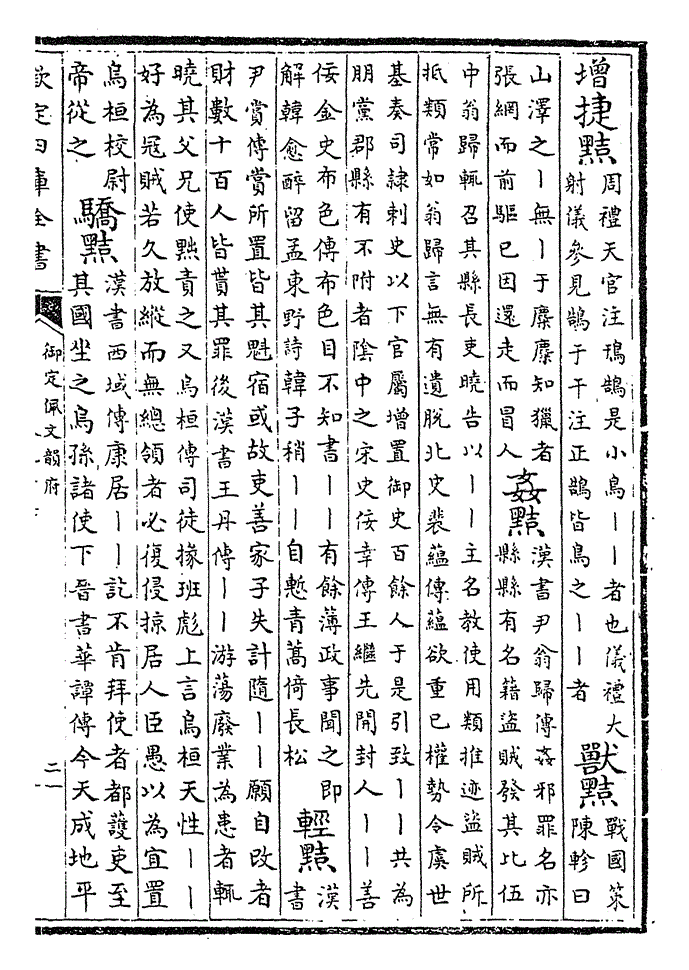 增捷黠
周禮天官注鳱鵠是小鳥丨丨者也儀禮大
射儀參見鵠于干注正鵠皆鳥之丨丨者
獸黠
戰國策
陳軫曰
山澤之丨無丨于麋麋知獵者
張網而前驅已因還走而冒人
姦黠
漢書尹翁歸傳姦邪罪名亦
縣縣有名籍盜賊發其比伍
中翁歸輒召其縣長吏曉告以丨丨主名教使用類推迹盜賊所
抵類常如翁歸言無有遺脫北史裴蘊傳蘊欲重已權勢令虞世
基奏司隸刺史以下官屬增置御史百餘人于是引致丨丨共為
朋黨郡縣有不附者陰中之宋史佞幸傳王繼先開封人丨丨善
佞金史布色傳布色目不知書丨丨有餘薄政事聞之即
解韓愈醉留孟東野詩韓子稍丨丨自慙青蒿倚長松
輕黠
漢
書
尹賞傳賞所置皆其魁宿或故吏善家子失計隨丨丨願自改者
財數十百人皆貰其罪後漢書王丹傳丨丨游蕩廢業為患者輒
曉其父兄使黜責之又烏桓傳司徒掾班彪上言烏桓天性丨丨
好為冦賊若久放縱而無總領者必復侵掠居人臣愚以為宜置
烏桓校尉
帝從之
驕黠
漢書西域傳康居丨丨訖不肯拜使者都護吏至
其國坐之烏孫諸使下晉書華譚傳今天成地平
欽定四庫全書
御定佩文韻府